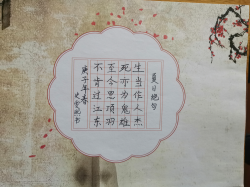 夏日绝句
生当作人杰
死亦为鬼雄
至今思項羽
不肯过江东
庚子年春